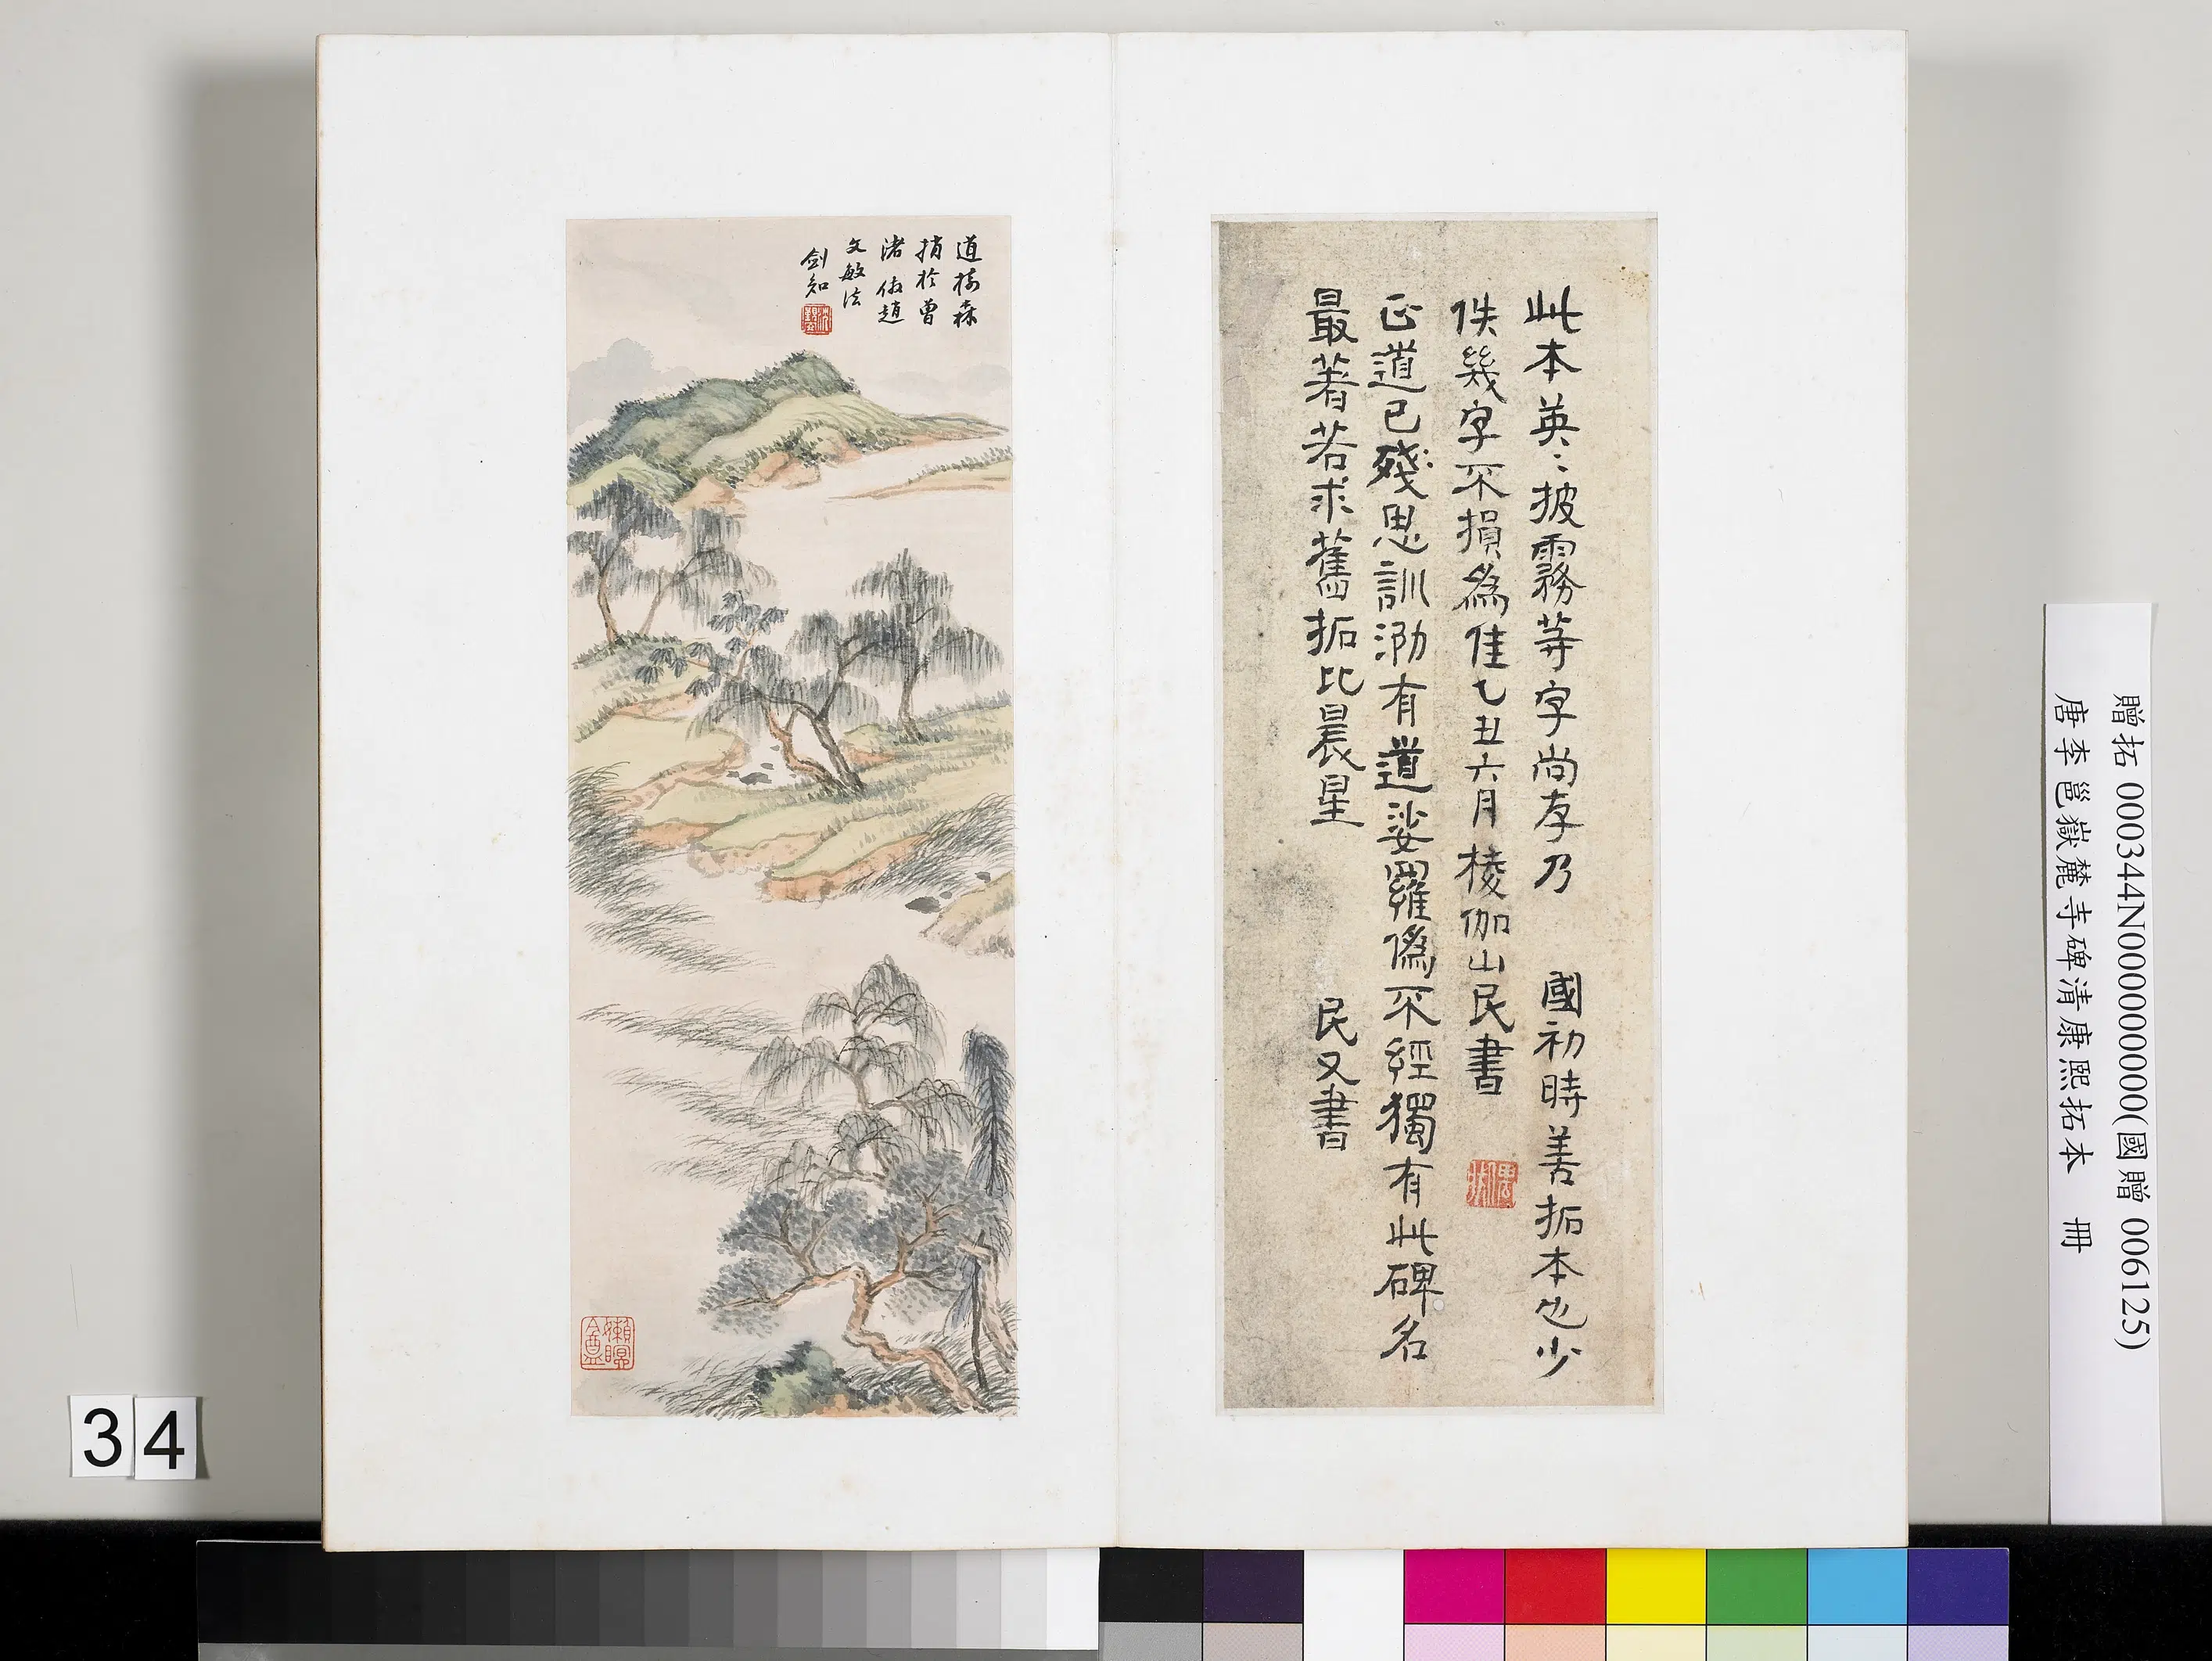 此本英〻披霧等字尚存乃　國初時善拓本也少
佚幾字不損為佳乙丑六月棱伽山民書
正道已殘思訓泐有道娑羅偽不經獨有此碑名
最著若求舊拓比晨星
民又書
道樹森
梢於曾
渚仿趙
文敏法
劍知
贈拓 000344N000000000(國贈 006125)
唐李邕嶽麓寺碑清康熙拓本 冊
34